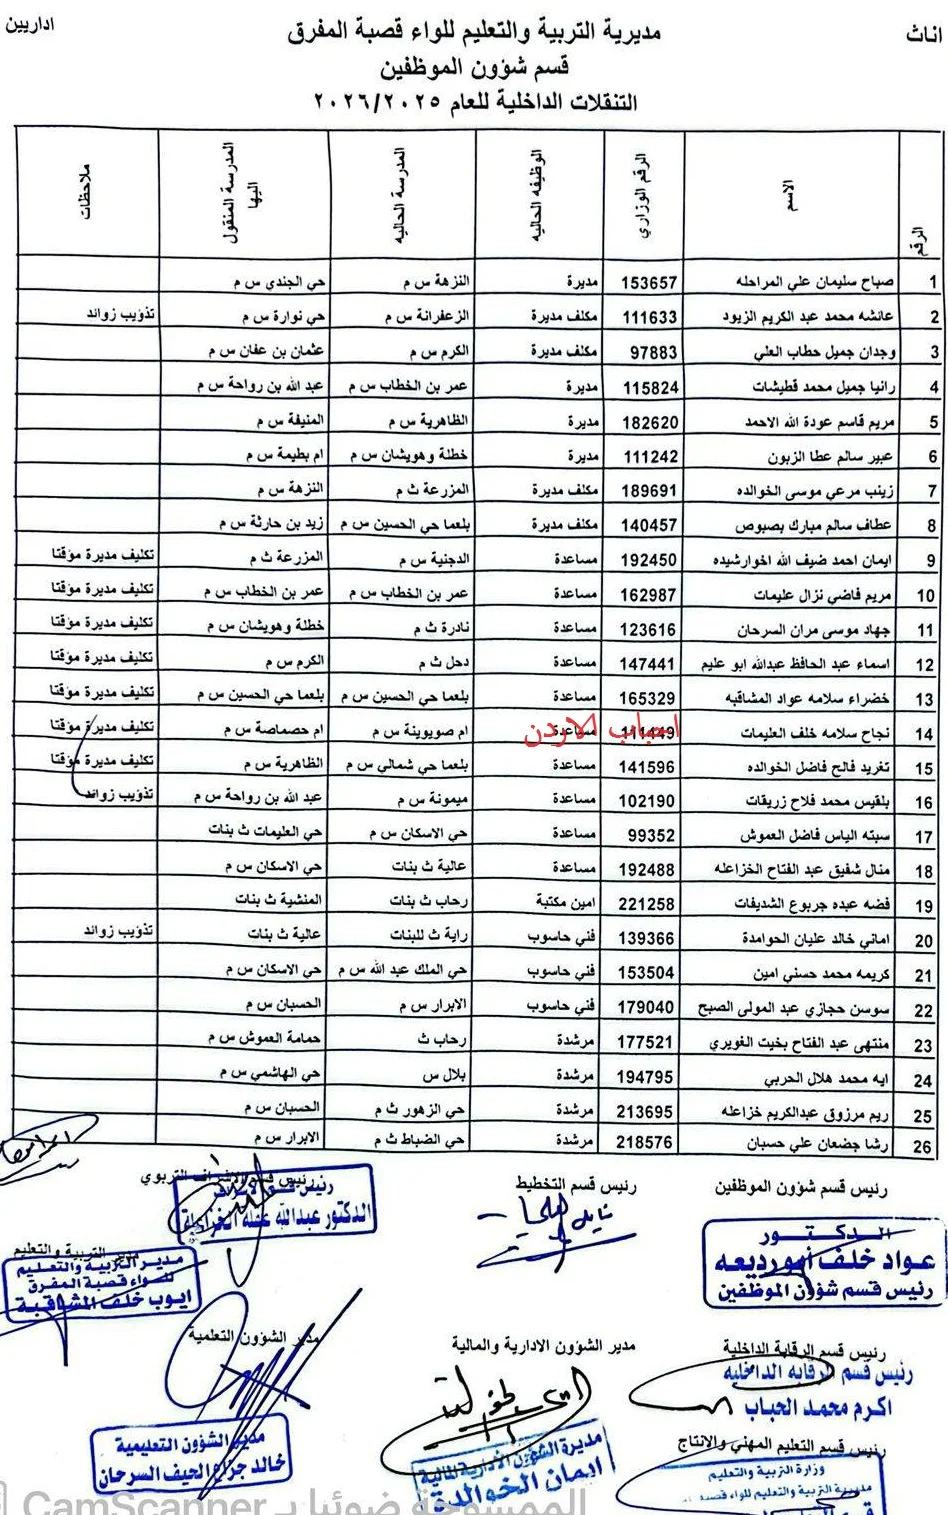 اناث
مديرية التربية والتعليم للواء قصبة المفرق
اداريين
قسم شؤون الموظفين
التنقلات الداخلية للعام ٢٠٢٦/٢٠٢٥
الرقم الاسم الرقم الوزاري الوظيفه الحاليه المدرسة الحاليه المدرسة المنقول اليها ملاحظات
1 صباح سليمان علي المراحله 153657 مديرة النزهة س م حي الجندي س م
2 عائشه محمد عبد الكريم الزيود 111633 مكلف مديرة الزعفرانة س م حي نوارة س م تذويب زوائد
3 وجدان جميل حطاب العلي 97883 مكلف مديرة الكرم س م عثمان بن عفان س م
4 رانيا جميل محمد قطيشات 115824 مديرة عمر بن الخطاب س م عبد الله بن رواحة س م
5 مريم قاسم عودة الله الاحمد 182620 مديرة الظاهرية س م المنيفة س م
6 عبير سالم عطا الزبون 111242 مديرة خطلة وهويشان س م ام بطيمة س م
7 زينب مرعي موسى الخوالده 189691 مكلف مديرة المزرعة ث م النزهة س م
8 عطاف سالم مبارك بصبوص 140457 مكلف مديرة بلعما حي الحسين س م زيد بن حارثة س م
9 ايمان احمد ضيف الله اخوارشيده 192450 مساعدة الدجنية س م المزرعة ث م تكليف مديرة مؤقتا
10 مريم فاضي نزال عليمات 162987 مساعدة عمر بن الخطاب س م عمر بن الخطاب س م تكليف مديرة مؤقتا
11 جهاد موسى مران السرحان 123616 مساعدة نادرة ث م خطلة وهويشان س م تكليف مديرة مؤقتا
12 اسماء عبد الحافظ عبدالله ابو عليم 147441 مساعدة دحل ث م الكرم س م تكليف مديرة مؤقتا
13 خضراء سلامه عواد المشاقبه 165329 مساعدة بلعما حي الحسين س م بلعما حي الحسين س م تكليف مديرة مؤقتا
14 نجاح سلامه خلف العليمات 111449 مساعدة ام صويوينة س م ام حصماصة س م تكليف مديرة مؤقتا
احباب الاردن
15 تغريد فالح فاضل الخوالده 141596 مساعدة بلعما حي شمالي س م الظاهرية س م تكليف مديرة مؤقتا
16 بلقيس محمد فلاح زريقات 102190 مساعدة ميمونة س م عبد الله بن رواحة س م تذويب زوائد
17 سبته الياس فاضل العموش 99352 مساعدة حي الاسكان س م حي العليمات ث بنات
18 منال شفيق عبد الفتاح الخزاعله 192488 مساعدة عالية ث بنات حي الاسكان س م
19 فضه عبده جربوع الشديفات 221258 امين مكتبة رحاب ث بنات المنشية ث بنات
20 اماني خالد عليان الحوامدة 139366 فني حاسوب راية ث للبنات عالية ث بنات تذويب زوائد
21 كريمه محمد حسني امين 153504 فني حاسوب حي الملك عبد الله س م حي الاسكان س م
22 سوسن حجازي عبد المولى الصبح 179040 فني حاسوب الابرار س م الحسبان س م
23 منتهى عبد الفتاح بخيت الغويري 177521 مرشدة رحاب ث حمامة العموش س م
24 ايه محمد هلال الحربي 194795 مرشدة بلال س حي الهاشمي س م
25 ريم مرزوق عبدالكريم خزاعله 213695 مرشدة حي الزهور ث م الحسبان س م
26 رشا جضعان علي حسبان 218576 مرشدة حي الضباط ث م الابرار س م
رئيس قسم شؤون الموظفين
رئيس قسم التخطيط
رئيس قسم الاشراف التربوي
رئيس قسم الاشراف
الدكتور عبدالله عقله الخزاعلة
الدكتور
عواد خلف ابورديعه
رئيس قسم شؤون الموظفين
مدير التربية والتعليم
مدير التربية والتعليم
للواء قصبة المفرق
ايوب خلف المشاقبة
رئيس قسم الرقابة الداخلية
رئيس قسم الرقابه الداخليه
اكرم محمد الحباب
مدير الشؤون الادارية والمالية
مديرة الشؤون الادارية المالية
ايمان الخوالدة
مدير الشؤون التعلمية
مدير الشؤون التعليمية
خالد جزاع الحيف السرحان
رئيس قسم التعليم المهني والانتاج
وزارة التربية والتعليم
مديرية التربية والتعليم للواء قصبة
الممسوحة ضوئيا بـ CamScanner